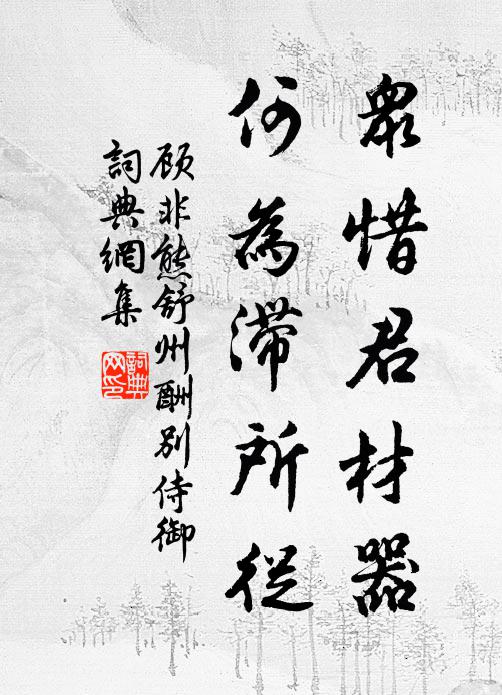 眾惜君材器
何為滯所從
顾非熊舒州酬別侍御
詞典網集
詞典网印